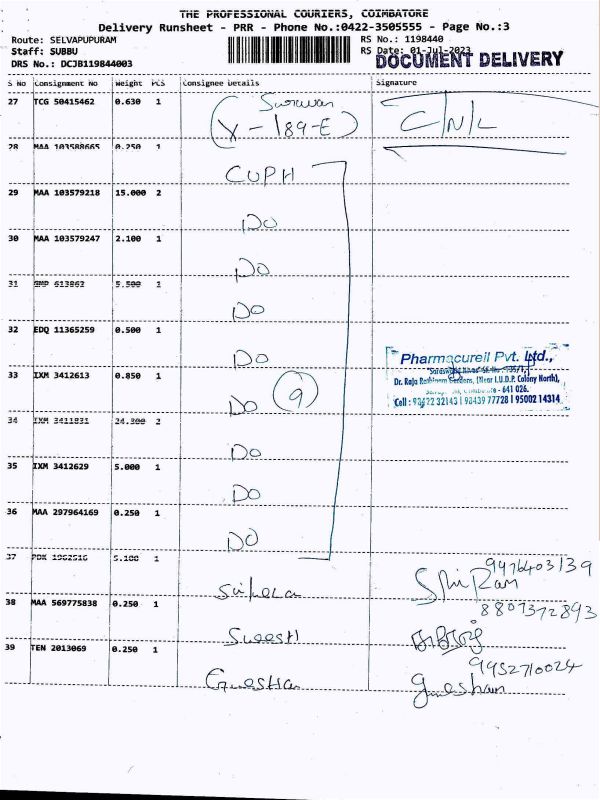 THE PROFESSIONAL COURIERS, COIMBATORE
Delivery Runsheet - PRR - Phone No.:0422-3505555 - Page No.:3
Route: SELVAPUPURAM RS No.: 1198440
Staff: SUBBU RS Date: 01-Jul-2023
DOCUMENT DELIVERY
DRS No.: DCJB119844003
S No Consignment No Weight PCS Consignee Details Signature
27 TCG 50415462 0.630 1
(X-189-E) C/N/L
28 MAA 103588665 0.250 1
CUPH
29 MAA 103579218 15.000 2
DO
30 MAA 103579247 2.100 1
DO
31 613862 5.500 1
DO
32 EDQ 11365259 0.500 1
DO
Pharmacureil Pvt. Ltd.,
33 IXM 3412613 0.850 1
Dr. Raja Gardens, (Near I.U.D.P. Colony North),
DO 9
- 641 026.
Cell : 93422 32143 | 98439 77728 | 95002 14314
34 IXM 3411831 24.300 2
DO
35 IXM 3412629 5.000 1
DO
36 MAA 297964169 0.250 1
DO
37 PDK 1962516 5.100 1
9476403139
ShiRam
38 MAA 569775838 0.250 1
8807372893
39 TEN 2013069 0.250 1
9952710024